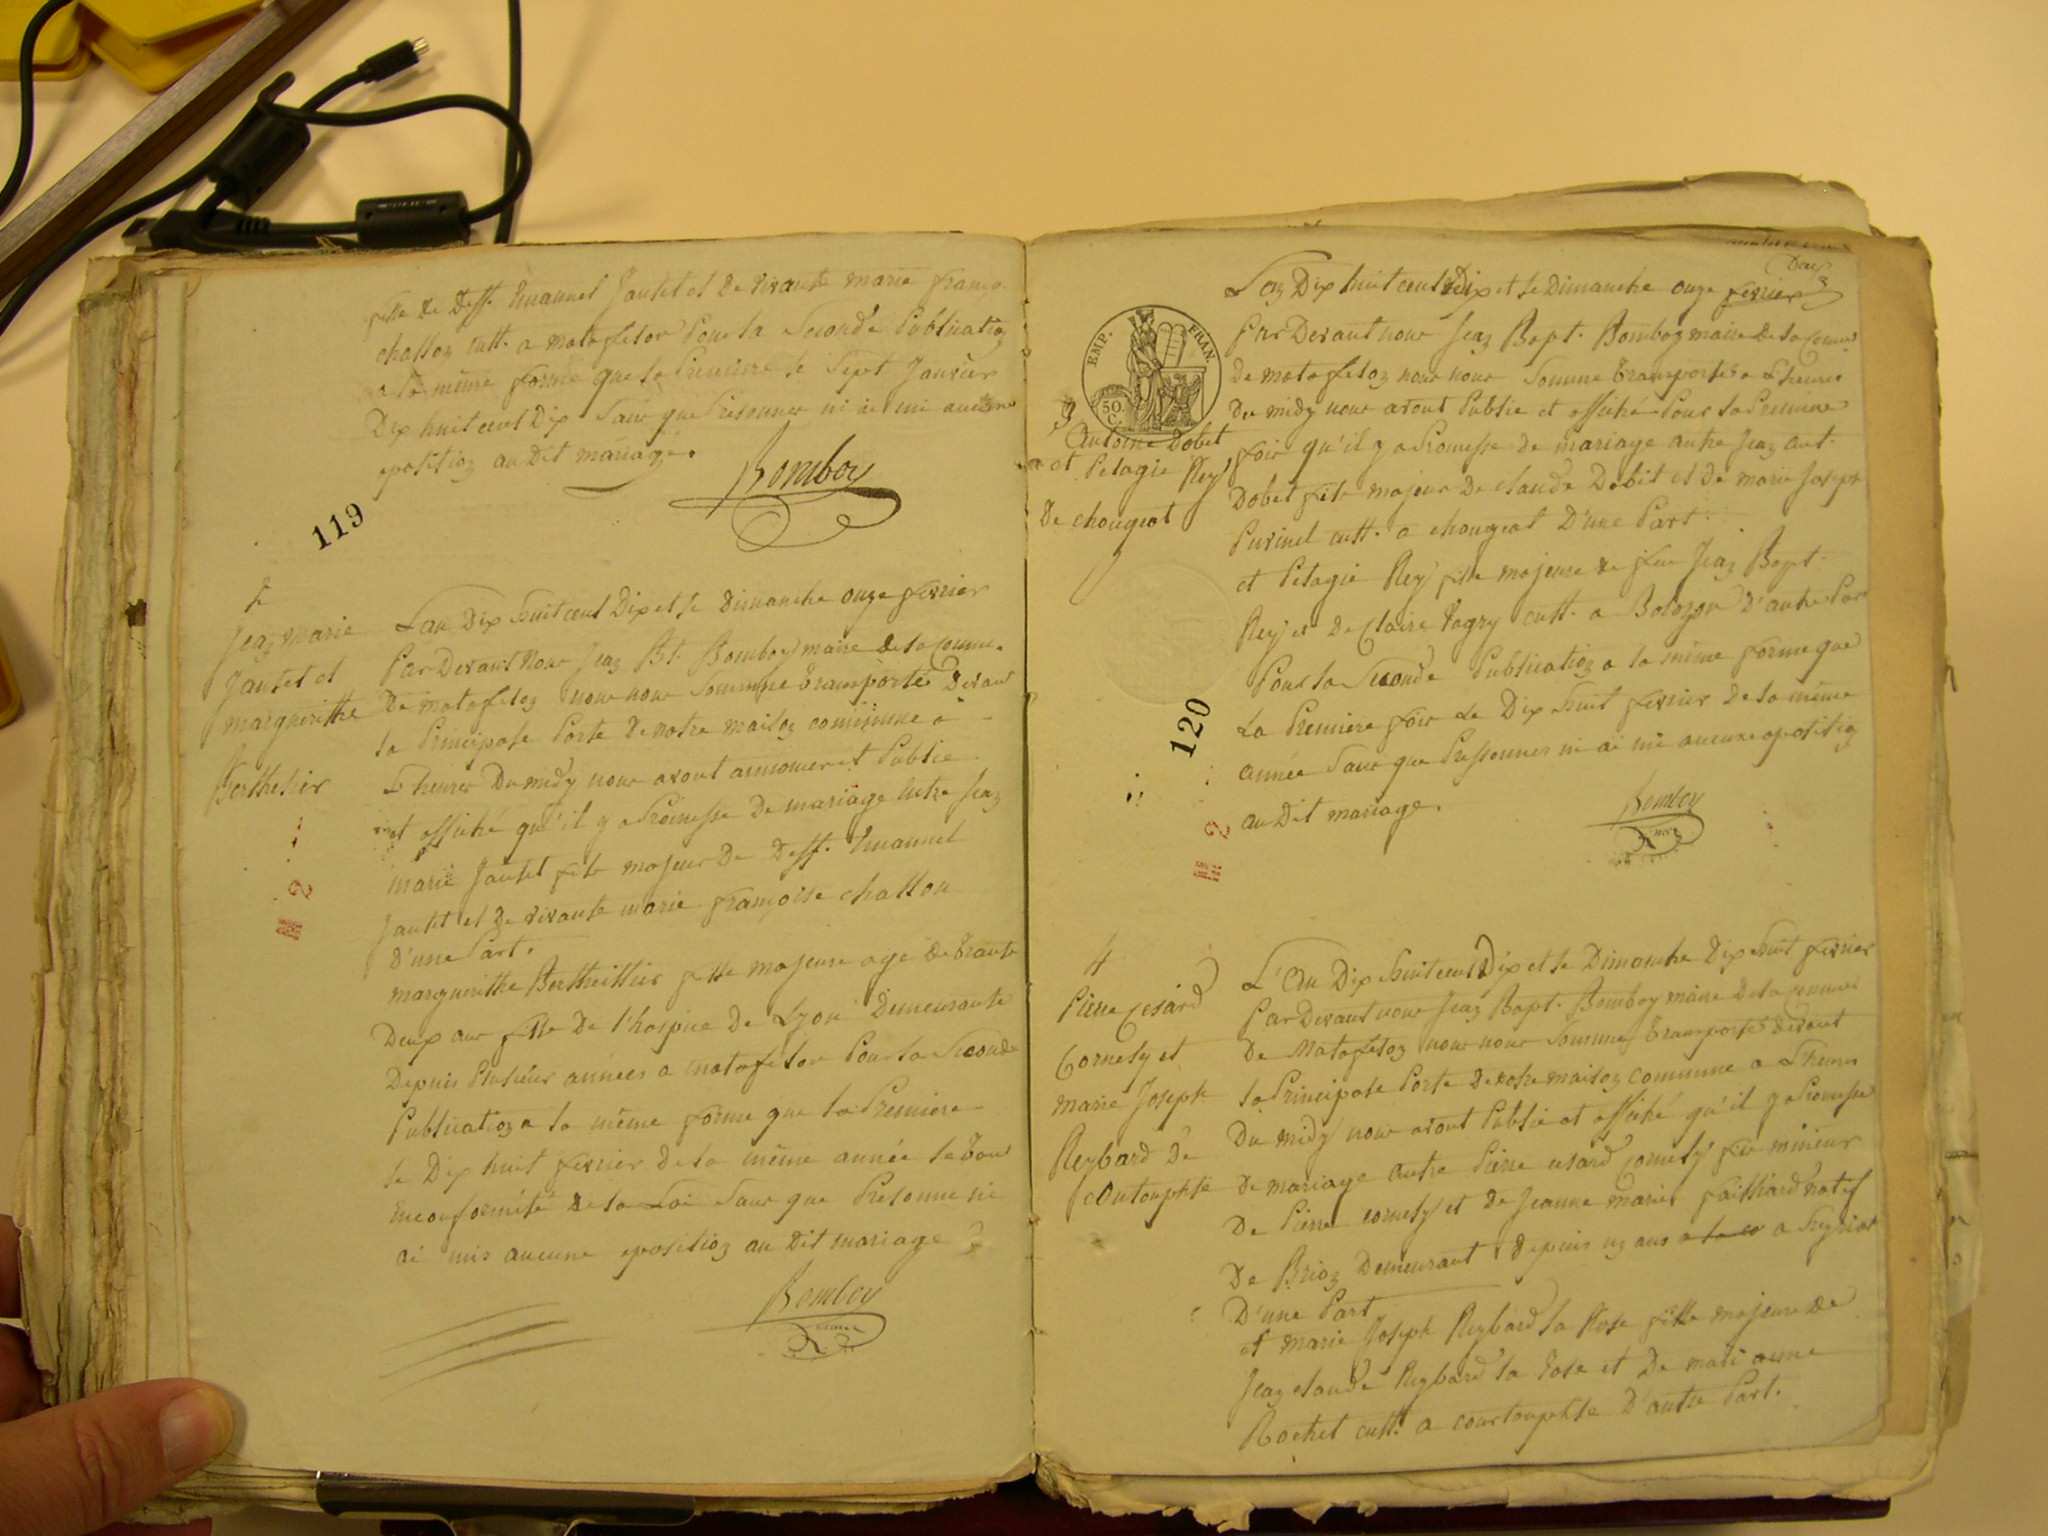 fille de deff. Emanuel Jantet et de vivante marie franço.
challon cult. a matafelon Pour la Seconde Publication
a la même forme que la Premiere le Sept Janvier
Dix huit cent Dix Sans que Presonnes ni ai mi aucune
oposition au Dit mariage.
Bomboy
119
2
Jean marie
Jantet et
marguerithe
Berthelier
L'an Dix huit cent Dix et le Dimanche onze fevrier
Par Devant nous Jean Bt. Bomboy maire de la Commu.
De matafelon nous nous Somme transporté Devan
la Principale Porte de notre maison commune a
L'heures Du midy nous avont annoncer et Publie
et affiché qu'il y a Promesse De mariage entre Jean
marie Jantet fils majeur De deff. Emanuel
Jantet et de vivante marie françoise challon
d'une Part.
margueritthe Berthellier fille majeure age de trante
Deux ans fille De l'hospice de Lyon Demeurante
Depuis Plusieurs années a matafelon Pour la Seconde
Publication a la même forme que la Premiere
le Dix huit fevrier de la même année le tous
En conformité de la Loi Sans que Presonne ni
ai mis aucune oposition au Dit mariage
Bomboy
maire
2
EMP. FRAN.
50. C.
3
Antoine Dobet
et Pelagie Rey
De chougeat
L'an Dix huit cent Dix et le Dimanche onze fevrier
Par Devant nous Jean Bapt. Bomboy maire De la Comu.
de matafelon nous nous Somme transportés a L'heures
Du midy nous avont Publie et affiché Pour la Premiere
fois qu'il y a Promesse de mariage antre Jean ant.
Dobet fils majeur De claude Dobet et de marie Joseph
cult. a chougeat D'une Part.
et Pelagie Rey fille majeure de feu Jean Bapt.
Rey et de Claire cult. a Bolozon D'autre Par
Pour la Seconde Publication a la même forme que
La Premiere fois Le Dix huit fevrier de la même
année Sans que Pressonnes ni ai mi aucune opositiong
au Dit mariage.
Bomboy
120
2
4
Pierre Cesard
Cornely et
marie Joseph
Reybard de
L'an Dix huit cent Dix et le Dimanche Dix huit fevrier
Par Devant nous Jean Bapt. Bomboy maire de la commu
De Matafelon nous nous Somme transporté devant
la Principale Porte de notre maison commune a L'heures
Du midy nous avont Publie et affiché qu'il y a Promesse
De mariage antre Pierre cesard Cornely fils mineur
De Pierre cornely et de Jeanne marie natif
De Brion Demeurant depuis a
D'une Part
et marie Joseph Reybard la Rose fille majeure de
Jean claude Reybard la Rose et De mari anne
Rochet cult. a courtouphle D'autre Part.